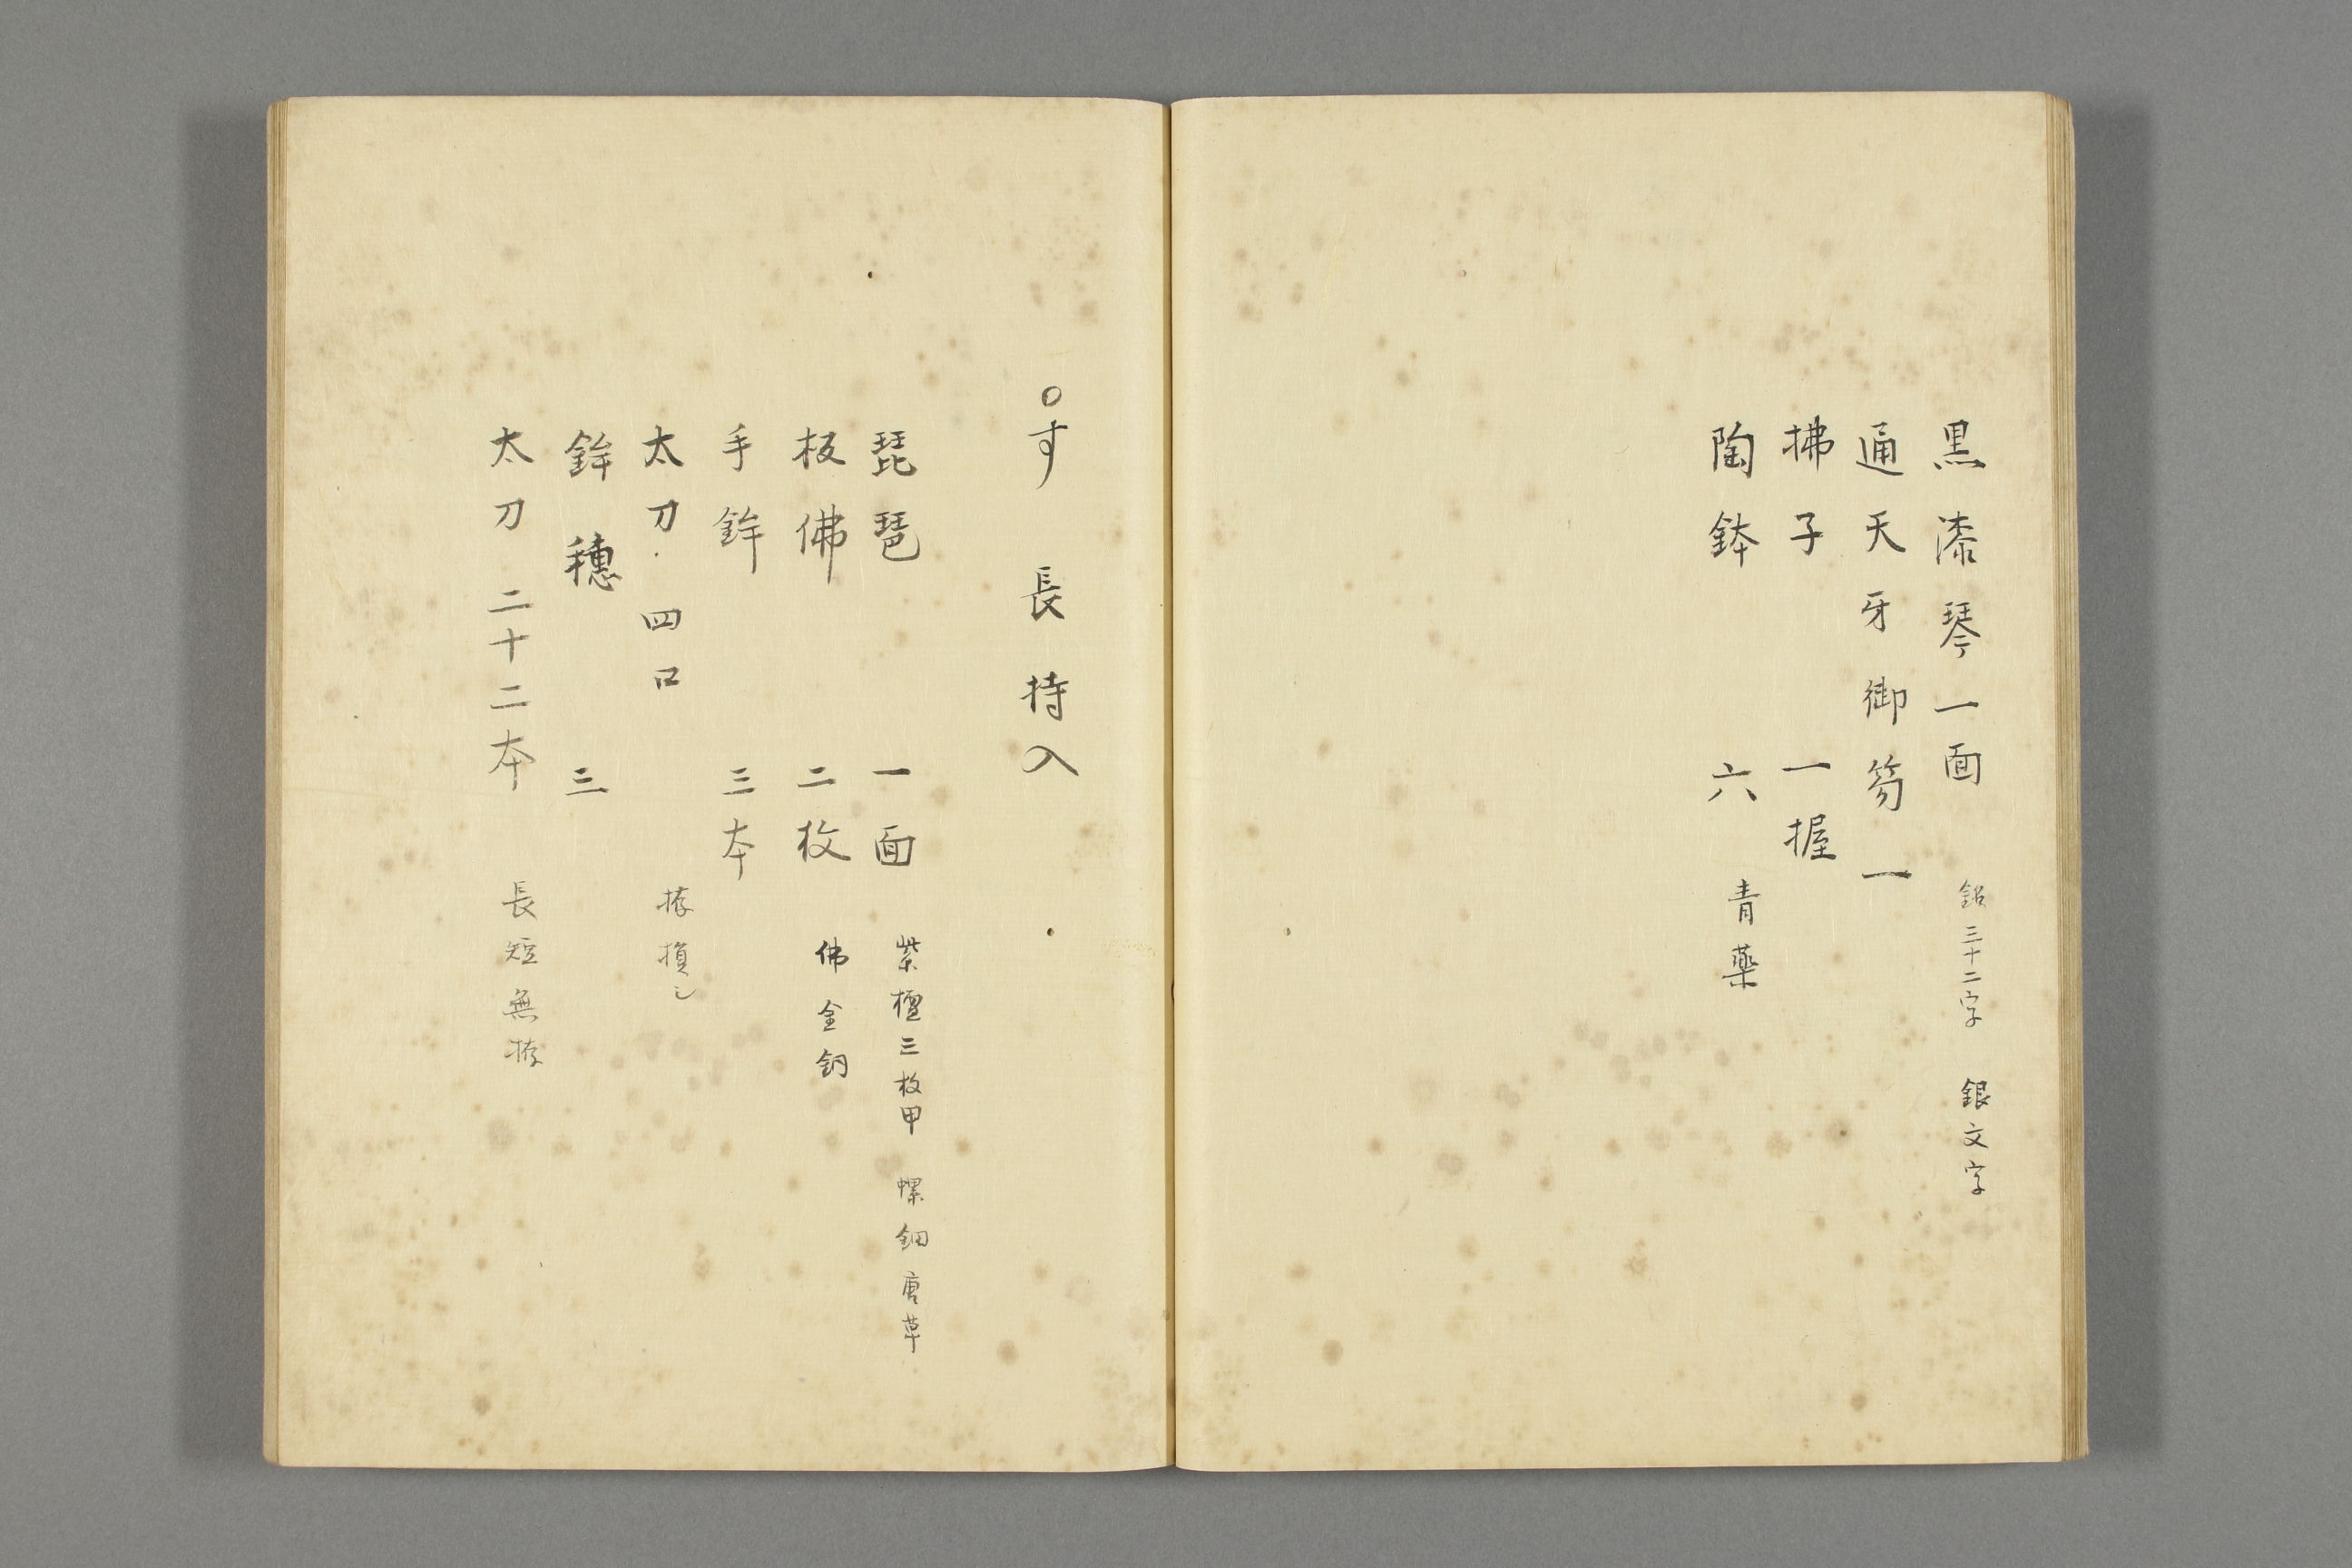 黒漆琴一面 銘三十二字 銀文字
通天牙御笏一
拂子 一握
陶鉢 六 青薬
○す 長持入
琵琶 一面 紫檀三枚甲 螺鈿唐草
板佛 二枚 佛金銅
手鉾 三本
太刀 四口 損し
鉾穂 三
太刀 二十二本 長短無